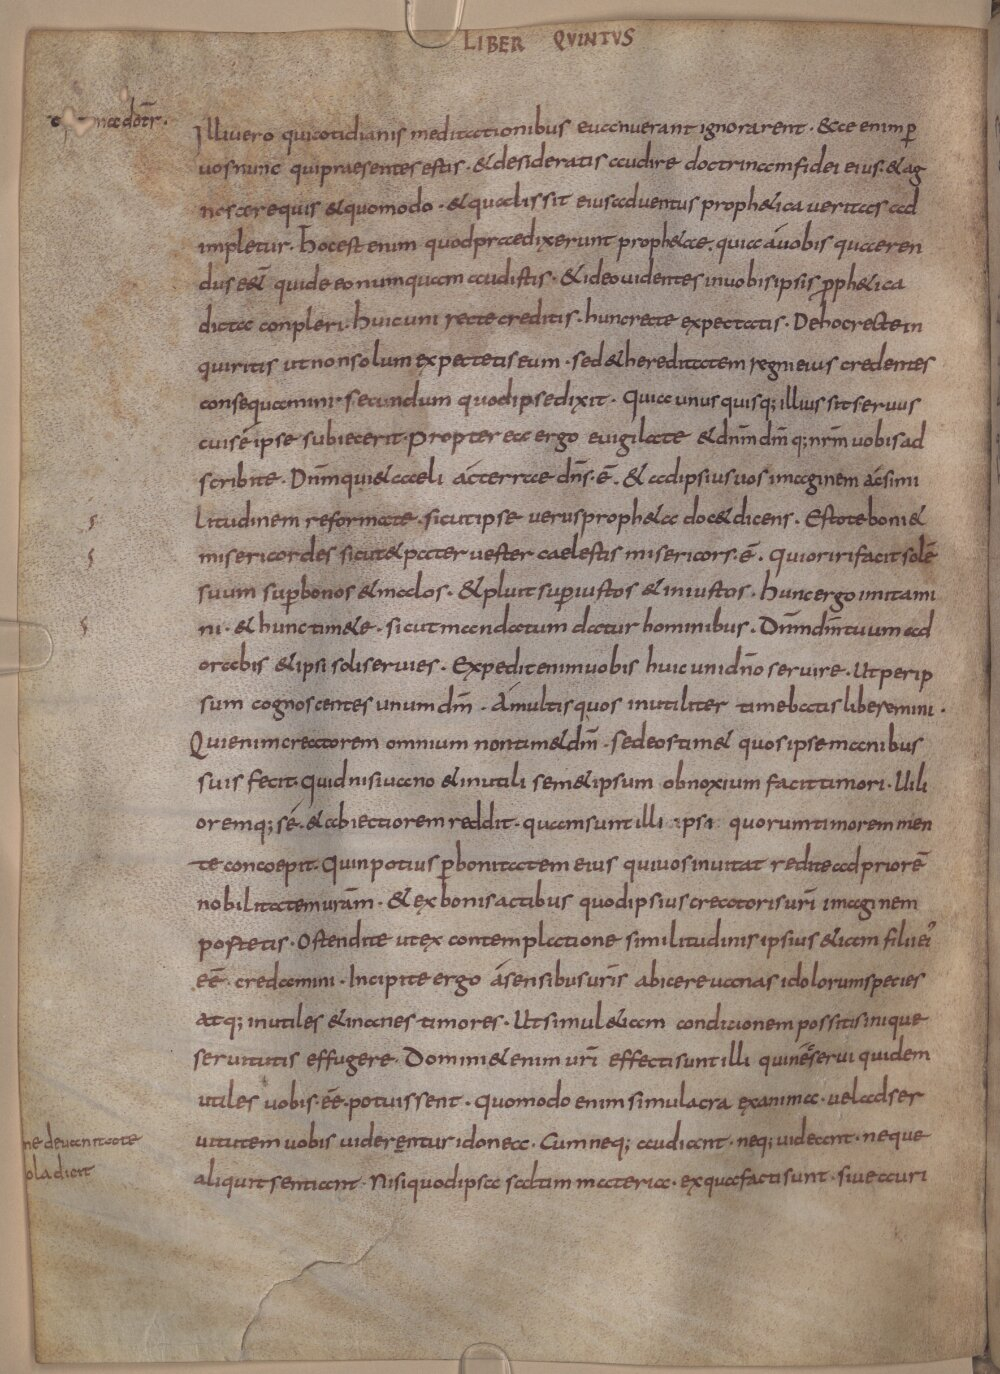 LIBER QVINTVS
Illi uero qui cotidianis meditationibus euanuerant ignorarent · Ecce enim p̄
uos nunc qui praesentes estis · & desideratis audire doctrinam fidei eius · & ag
noscere quis & quomodo · & qualis sit eius aduentus proph&ica ueritas ad
impletur · hoc est enim quod praedixerunt proph&ae · quia á uobis quaeren
dus e&̄ qui de eo numquam audistis · & ideo uidentes in uobis ipsis p̱ph&ica
dicta conpleri · huic uni recte creditis · hunc recte expectatis · De hoc recte in
quiritis ut non solum expectetis eum · sed & hereditatem regni eius credentes
consequamini · secundum quod ipse dixit · quia unus quisq; illius sit seruus
cui sé ipse subiecerit · Propter ea ergo euigilate & dn̄m dm̄ q; nr̄m uobis ad
scribite · Dn̄m qui & caeli ác terrae dn̄s · ē · & ad ipsius uos imaginem ác simi
litudinem reformate · sicut ipse uerus proph&a doc& dicens · Estote boni &
misericordes sicut & pater uester caelestis misericors · ē · qui oriri facit solē
suum sup̱ bonos & malos · & pluit sup̱ iustos & iniustos · hunc ergo imitami
ni · & hunc tim&e · sicut mandatum datur hominibus · Dn̄m dm̄ tuum ad
orabis & ipsi soli seruies · Expedit enim uobis huic uni dn̄o seruire · Ut per ip
sum cognoscentes unum dm̄ · Á multis quos inutiliter timebatis liberemini ·
Qui enim creatorem omnium non tim& dm̄ · sed eos tim& quos ipse manibus
suis fecit · quid nisi uano & inutili sem&ipsum obnoxium facit timori · Uili
oremq; sé · & abiectiorem reddit · quam sunt illi ipsi quorum timorem men
te concoepit · Quin potius p̱ bonitatem eius qui uos inuitat redite ad priorē
nobilitatem ur̄am · & ex bonis actibus quod ipsius creatoris uri̅ imaginem
postetis · Ostendite ut ex contemplatione similitudinis ipsius &iam filii ei᾽
eē · credamini · Incipite ergo á sensibus ur̄is abicere uanas idolorum species
atq; inutiles & inanes timores · Ut simul &iam condicionem possitis inique
seruitutis effugere · Domini & enim uri̅ effecti sunt illi qui nē serui quidem
utiles uobis · eē · potuissent · Quomodo enim simulacra exanima · uel ad ser
uitutem uobis uiderentur idonea · Cum neq; audiant · neq; uideant · neque
ne deuenitate
oladicit
aliquit sentiant · Nisi quod ipsa sadtim materia · ex qua facti sunt · siue auri